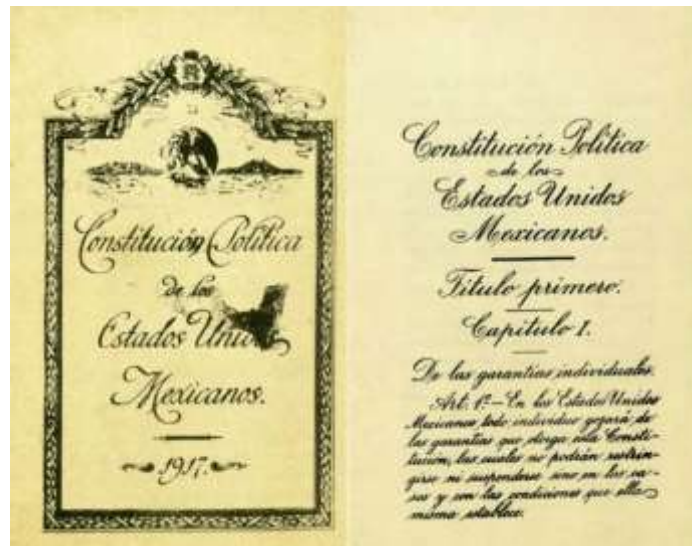 Constitución Política
de los
Estados Unidos
Mexicanos.
1917.
Constitución Política
de los
Estados Unidos
Mexicanos.
Título primero.
Capítulo I.
De las garantías individuales.
Art. 1º — En los Estados Unidos
Mexicanos todo individuo gozará de
las garantías que otorga esta Consti-
tución, las cuales no podrán restrin-
girse ni suspenderse sino en los ca-
sos y con las condiciones que ella
misma establece.